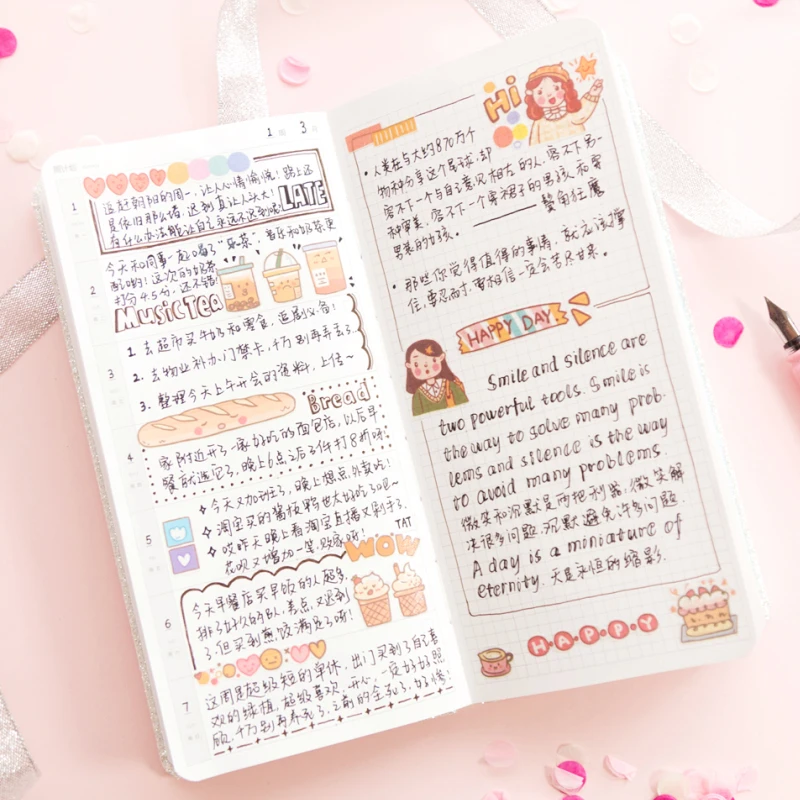 1 周 3 月
1
追赶朝阳的周一，让人心情愉悦！路上还
是依旧那么堵，迟到真让人头大！
有什么办法能让自己永远不迟到呢
LATE
2
今天和同事一起喝了"乐茶"，音乐和奶茶更
配哟！这次的奶茶
打分4.5分，还不错！
Music Tea
3
1. 去超市买牛奶和零食，追剧必备！
2. 去物业补办门禁卡，千万别再弄丢了…
3. 整理今天上午开会的资料，上传~
Bread
4
家附近开了一家好吃的面包店，以后早
餐就选它了，晚上6点之后2件打8折唷！
5
今天又加班了，晚上想点外卖吃！
淘宝买的酱板鸭也太好吃了吧~
哎昨天晚上看淘宝直播又剁手了，
花呗又增加一笔，败家呀！
TAT
WOW
6
今天早餐店买早饭的人超多，
排了好久的队，差点又迟到
了，但买到煎饺满足了呀！
7
这周是超级短的单休，出门买到了自己喜
欢的绿植，超级喜欢，开心，一定好好照
顾，千万别再养死了，之前的全死了，好惨！
Hi
人类在与大约870万个
物种分享这个星球，却
容不下一个与自己意见相左的人，容不下另一
种审美，容不下一个穿裙子的男孩和爱
男装的女孩。
——鬓角狂魔
那些你觉得值得的事情，就先该撑
住，要忍耐，要相信一定会苦尽甘来。
HAPPY DAY
Smile and silence are
two powerful tools. Smile is
the way to solve many prob-
lems and silence is the way
to avoid many problems.
微笑和沉默是两把利器，微笑解
决很多问题，沉默避免许多问题.
A day is a miniature of
eternity. 一天是永恒的缩影.
H·A·P·P·Y